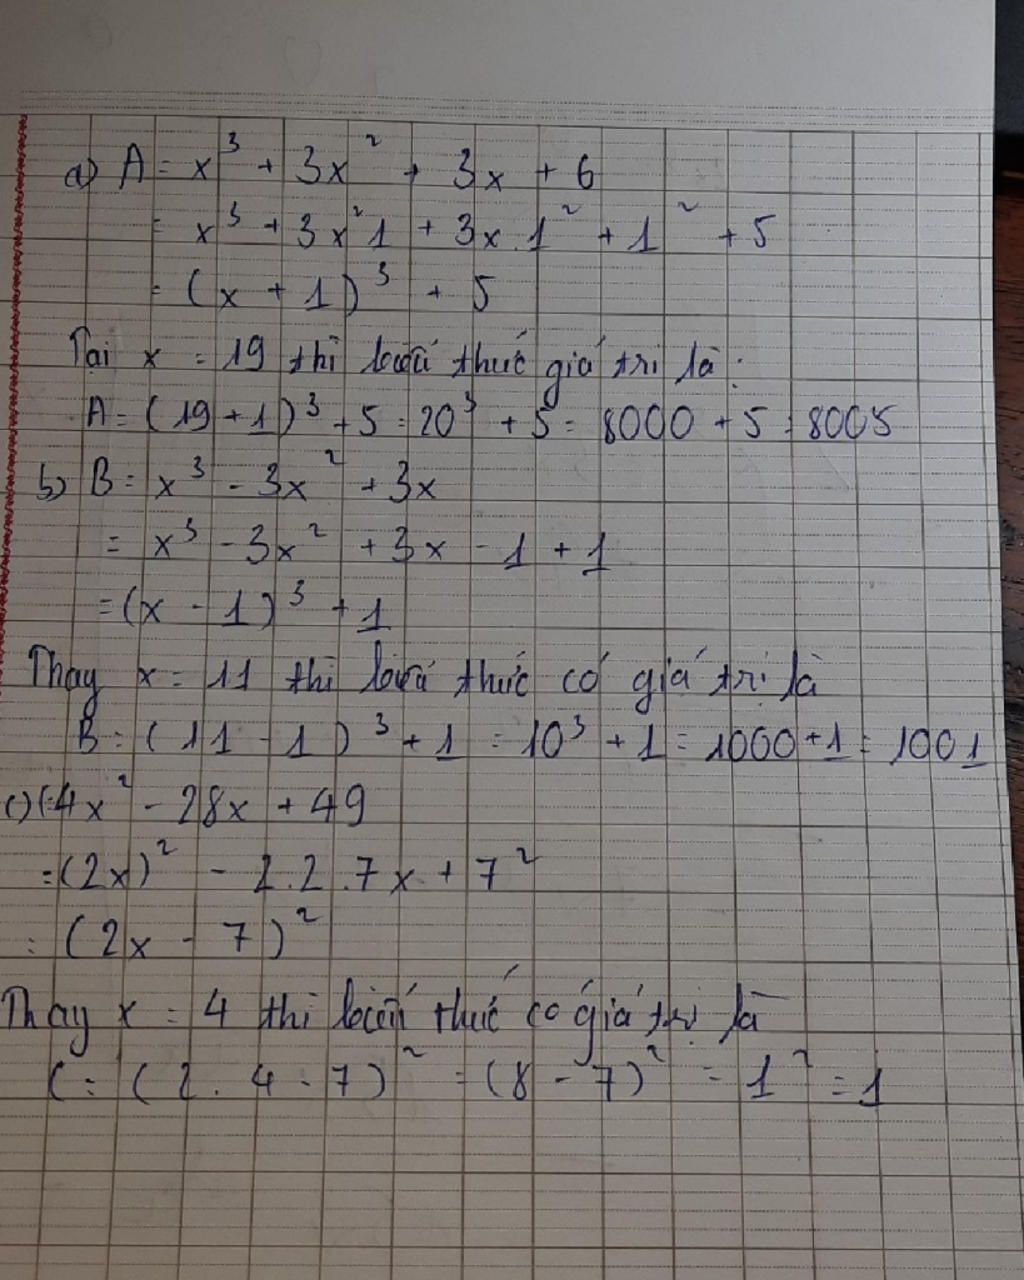 a) A = x³ + 3x² + 3x + 6
= x³ + 3x²1 + 3x.1² + 1² + 5
= (x + 1)³ + 5
Tại x = 19 thì biểu thức giá trị là:
A = (19 + 1)³ + 5 = 20³ + 5 = 8000 + 5 = 8005
b) B = x³ - 3x² + 3x
= x³ - 3x² + 3x - 1 + 1
= (x - 1)³ + 1
Thay x = 11 thì biểu thức có giá trị là
B = (11 - 1)³ + 1 = 10³ + 1 = 1000 + 1 = 1001
c) 4x² - 28x + 49
= (2x)² - 2.2.7x + 7²
= (2x - 7)²
Thay x = 4 thì biểu thức có giá trị là
C = (2.4 - 7)² = (8 - 7)² = 1² = 1